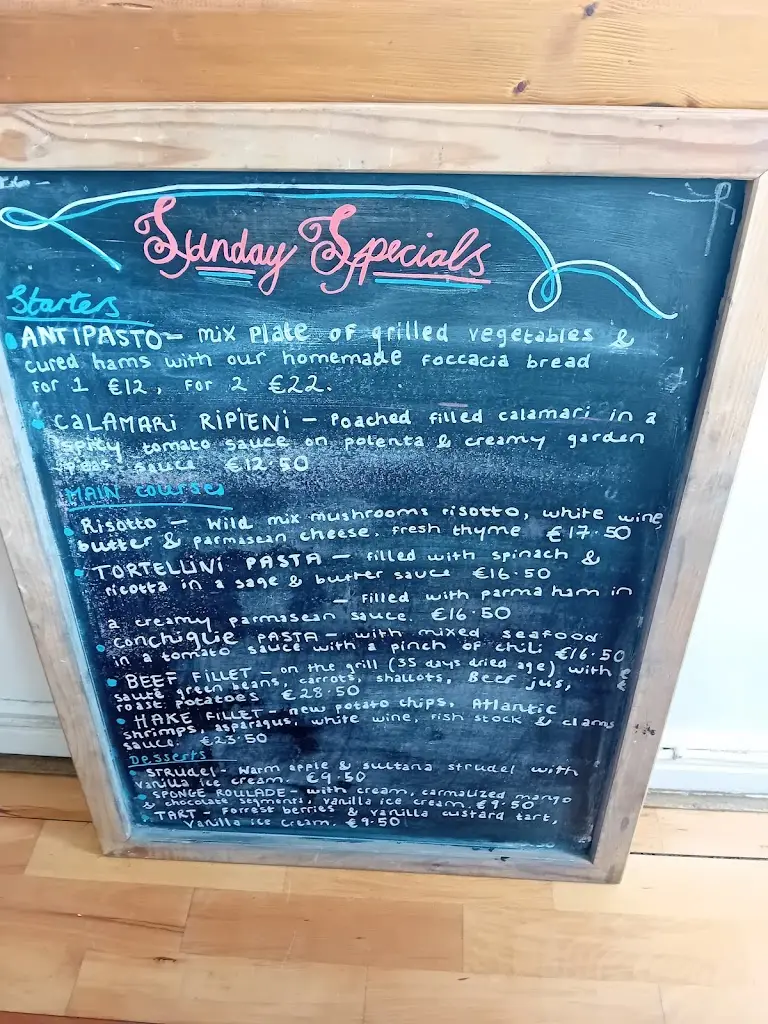 Sunday Specials
Starters
ANTIPASTO — mix plate of grilled vegetables &
cured hams with our homemade foccacia bread
for 1 €12, for 2 €22.
CALAMARI RIPIENI — Poached filled calamari in a
spicy tomato sauce on polenta & creamy garden
peas sauce €12.50
MAIN courses
Risotto — Wild mix mushrooms risotto, white wine,
butter & parmasean cheese, fresh thyme €17.50
TORTELLINI PASTA — filled with spinach &
ricotta in a sage & butter sauce €16.50
— filled with parma ham in
a creamy parmasean sauce. €16.50
CONCHIGLIE PASTA — with mixed seafood
in a tomato sauce with a pinch of chili €16.50
BEEF FILLET — on the grill (35 days dried age) with
sauté green beans, carrots, shallots, Beef jus,
roast Potatoes €28.50
HAKE FILLET — new potato chips, Atlantic
shrimps, asparagus, white wine, fish stock & clams
sauce. €23.50
Desserts
STRUDEL - Warm apple & sultana strudel with
vanilla ice cream. €9.50
SPONGE ROULADE - with cream, carmalized mango
& chocolate segments, vanilla ice cream. €9.50
TART - Forrest berries & vanilla custard tart,
vanilla ice cream. €9.50